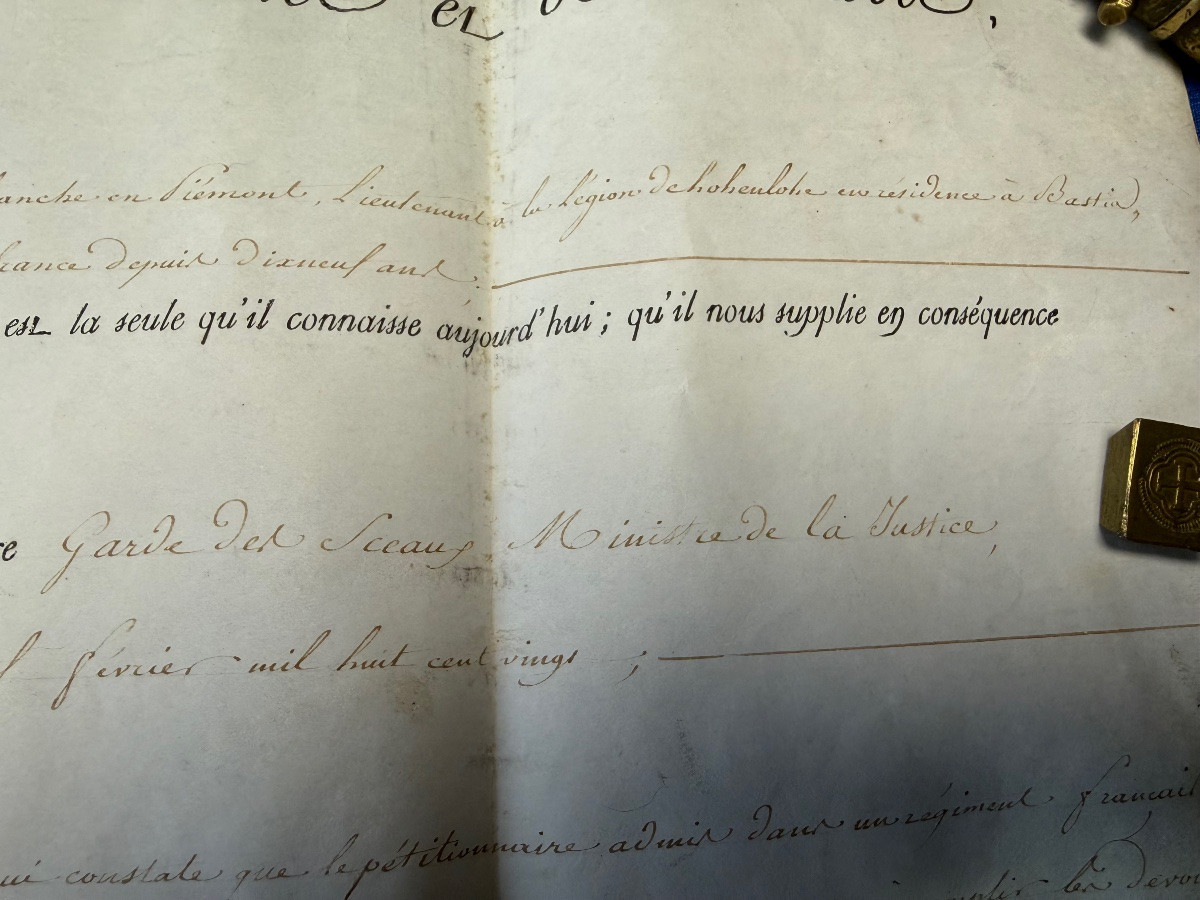 et
anche en Piémont, Lieutenant à la Légion de hohenlohe en résidence à Bastia,
france depuis dixneuf ans.
est la seule qu'il connaisse aujourd'hui ; qu'il nous supplie en conséquence
re Garde des Sceaux, Ministre de la Justice,
février mil huit cent vingt ;
ui constate que le pétitionnaire admis dans un régiment français
les devoi